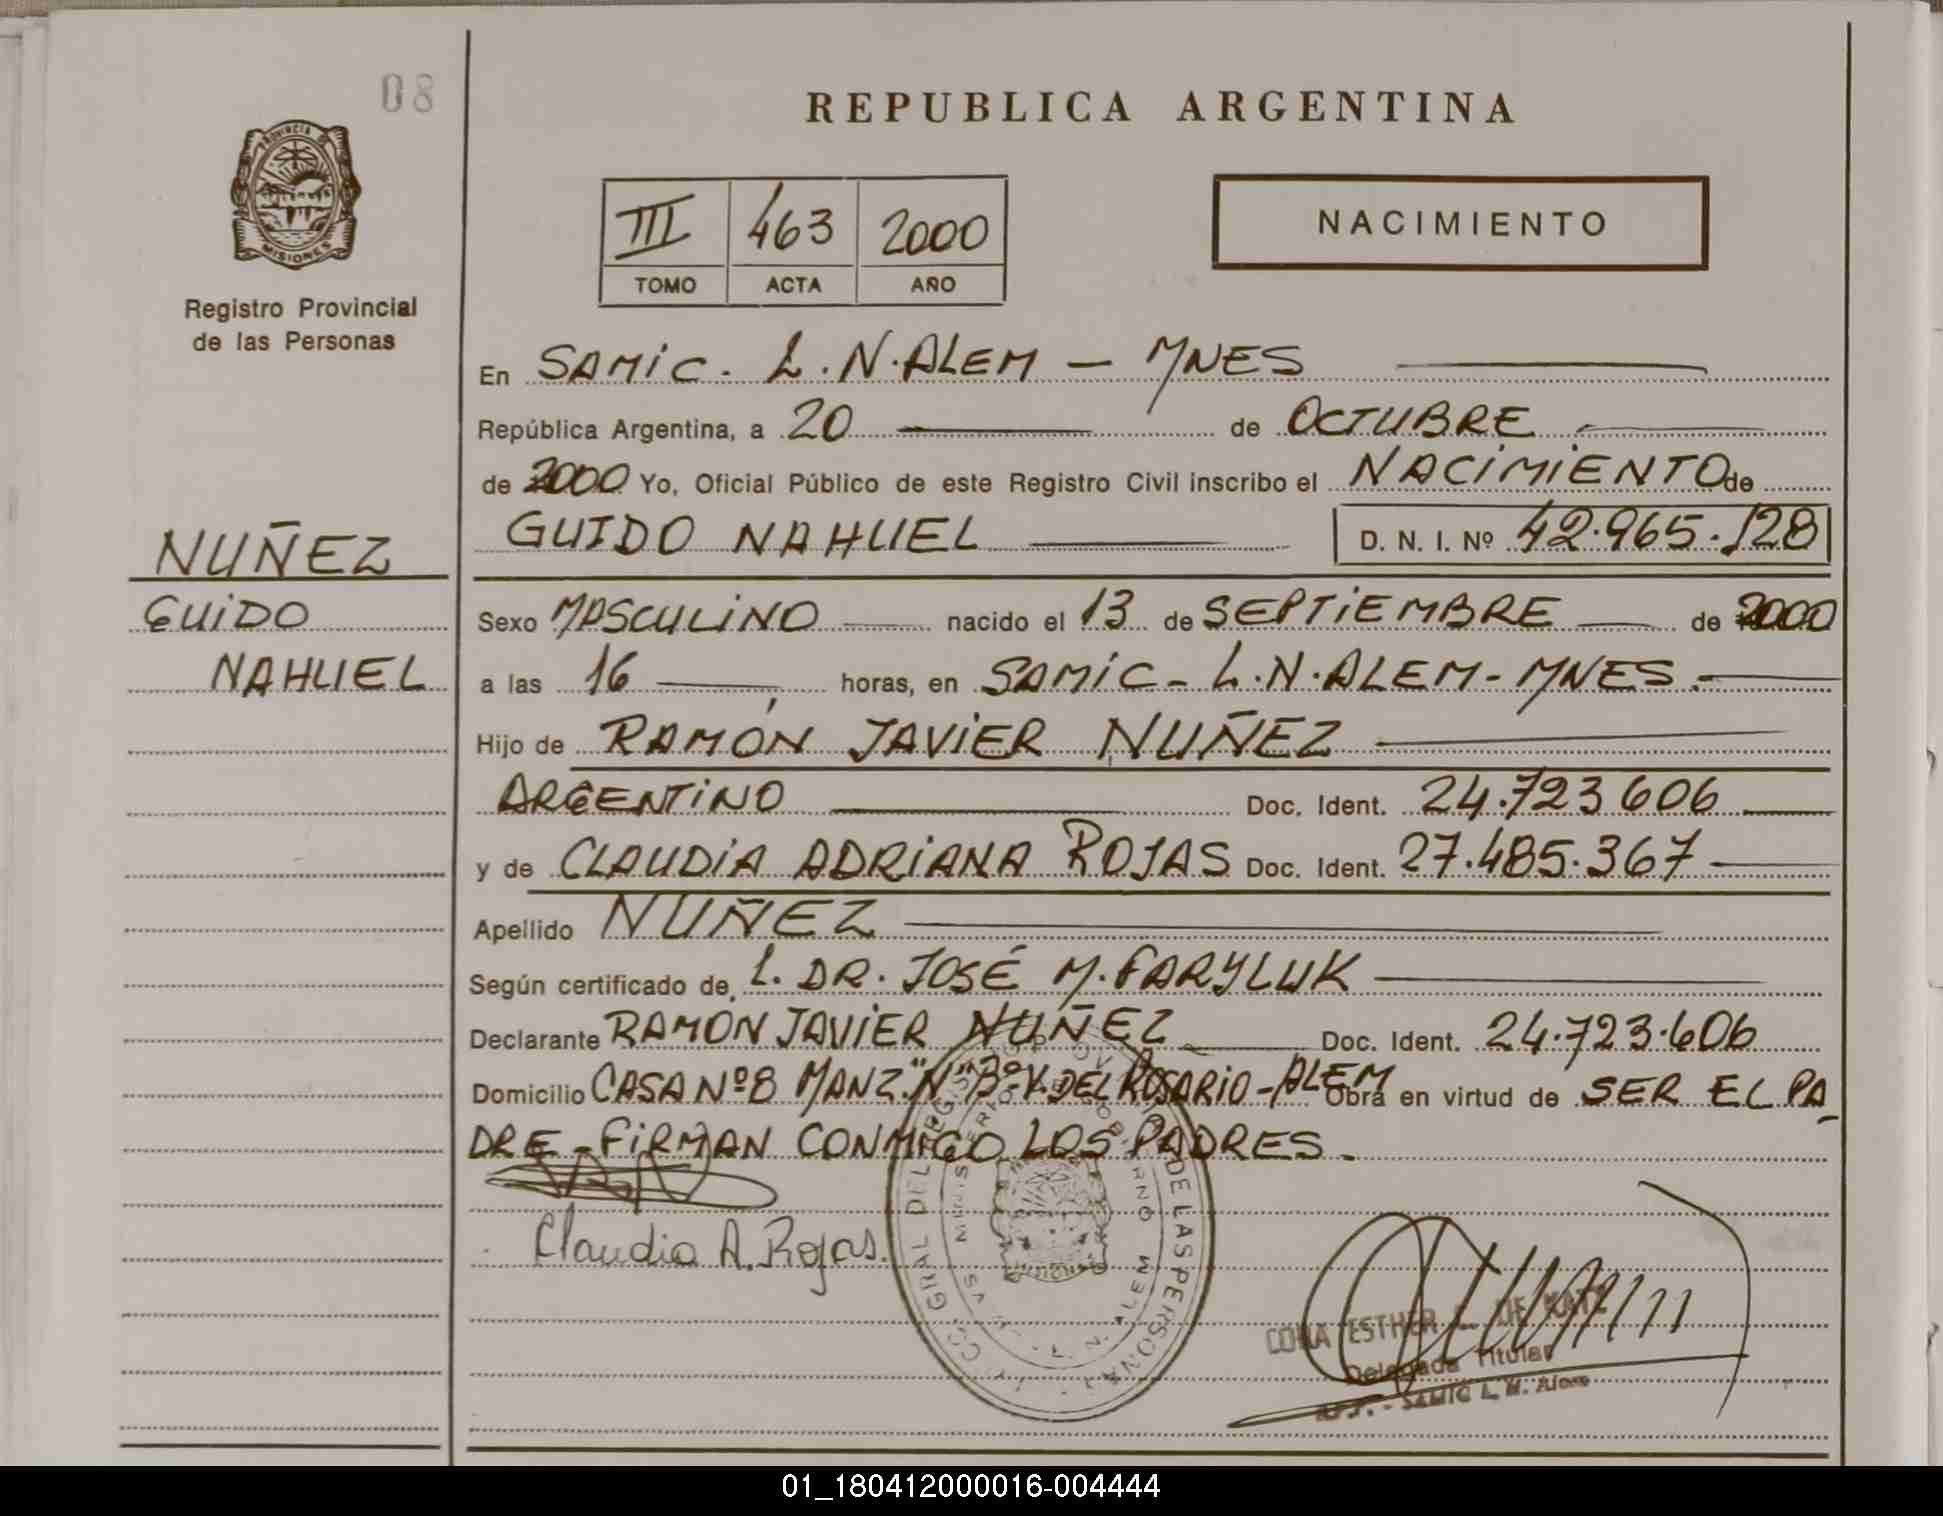 08
REPUBLICA ARGENTINA
PROVINCIA DE
MISIONES
Registro Provincial
de las Personas
III 463 2000
TOMO ACTA AÑO
NACIMIENTO
En SAMIC. L.N.ALEM - MNES
República Argentina, a 20 de OCTUBRE
de 2000 Yo, Oficial Público de este Registro Civil inscribo el NACIMIENTO de
GUIDO NAHUEL D. N. I. Nº 42.965.128
NUÑEZ
GUIDO
NAHUEL
Sexo MASCULINO nacido el 13 de SEPTIEMBRE de 2000
a las 16 horas, en SAMIC- L.N.ALEM-MNES.-
Hijo de RAMÓN JAVIER NUÑEZ
ARGENTINO Doc. Ident. 24.723 606
y de CLAUDIA ADRIANA ROJAS Doc. Ident. 27.485.367
Apellido NUÑEZ
Según certificado de L. DR. JOSÉ M. FARYLUK
Declarante RAMON JAVIER NUÑEZ Doc. Ident. 24.723.606
Domicilio CASA Nº8 MANZ."N" Bº.V.DEL ROSARIO-ALEM Obra en virtud de SER EL PA-
DRE-FIRMAN CONMIGO LOS PADRES.
Claudia A. Rojas.
GRAL DEL DE LAS PERSONAS
ALEM
ESTHER DE KATZ
Delegada Titular
SAMIC L. N. Alem
01_180412000016-004444